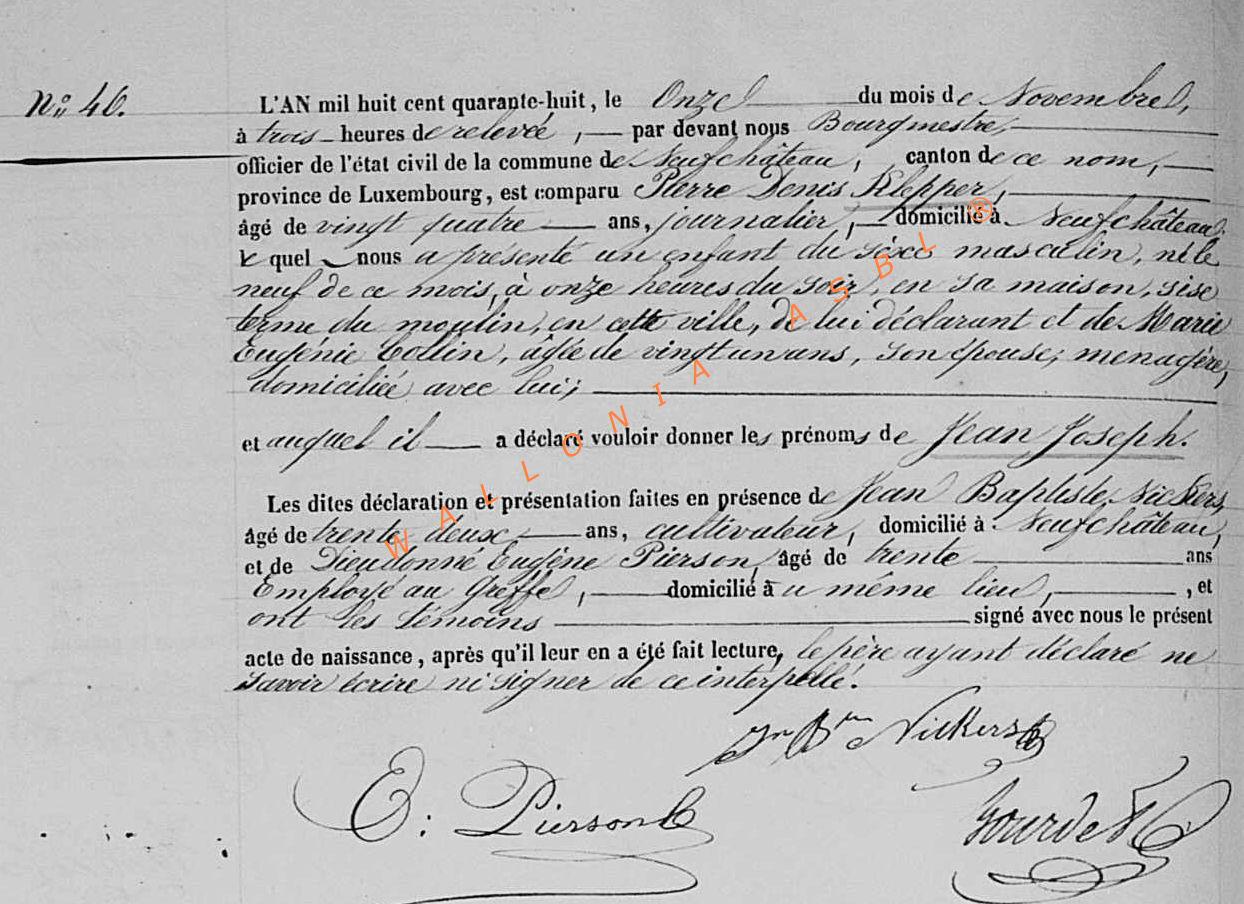 N° 46.
L'AN mil huit cent quarante-huit, le Onze du mois de Novembre,
à trois heures de relevée, par devant nous Bourgmestre,
officier de l'état civil de la commune de Neufchâteau, canton de ce nom,
province de Luxembourg, est comparu Pierre Denis Klepper,
âgé de vingt quatre ans, journalier, domicilié à Neufchâteau,
le quel nous a présenté un enfant du séxe masculin, né le
neuf de ce mois, à onze heures du soir, en sa maison, sise
terme du moulin, en cette ville, de lui déclarant et de Marie
Eugénie Collin, âgée de vingt un ans, son épouse, menagère,
domiciliée avec lui;
et auquel il a déclaré vouloir donner les prénoms de Jean Joseph.
Les dites déclaration et présentation faites en présence de Jean Baptiste Nickers,
âgé de trente deux ans, cultivateur, domicilié à Neufchâteau,
et de Dieudonné Eugène Pierson, âgé de trente ans
Employé au Greffe, domicilié au même lieu, , et
ont les témoins signé avec nous le présent
acte de naissance, après qu'il leur en a été fait lecture, le père ayant déclaré ne
savoir écrire ni signer de ce interpellé.
Jn Bte Nickers
E: Pierson
Gourdet
WALLONIA ASBL ®